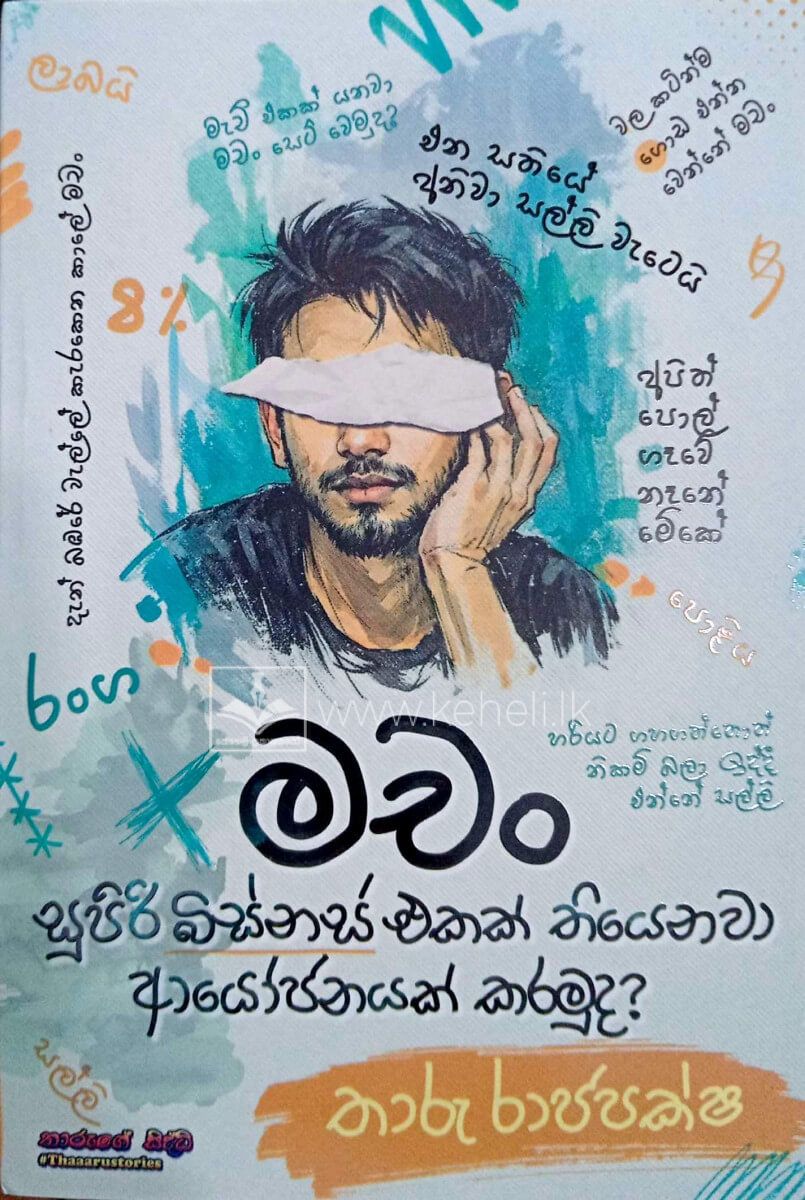 ලාබයි
මැච් එකක් යනවා
මචං සෙට් වෙමුද?
එන සතියේ
අනිවා සල්ලි වැටෙයි
වල කටින්ම
ගොඩ එන්න
වෙන්නේ මචං
දැන් බඹරේ වැල්ලේ කැරකෙන කාලේ මචං
8%
අපිත්
පොල්
ගෑවේ
නෑනේ
මේකේ
පොළිය
රංග
www.keheli.lk
හරියට ගහගත්තොත්
නිකම් බලා ඉද්දි
එන්නේ සල්ලි
මචං
සුපිරි බිස්නස් එකක් තියෙනවා
ආයෝජනයක් කරමුද?
සල්ලි
තාරු රාජපක්ෂ
තාරුගේ සිද්ධි
#Thaaarustories